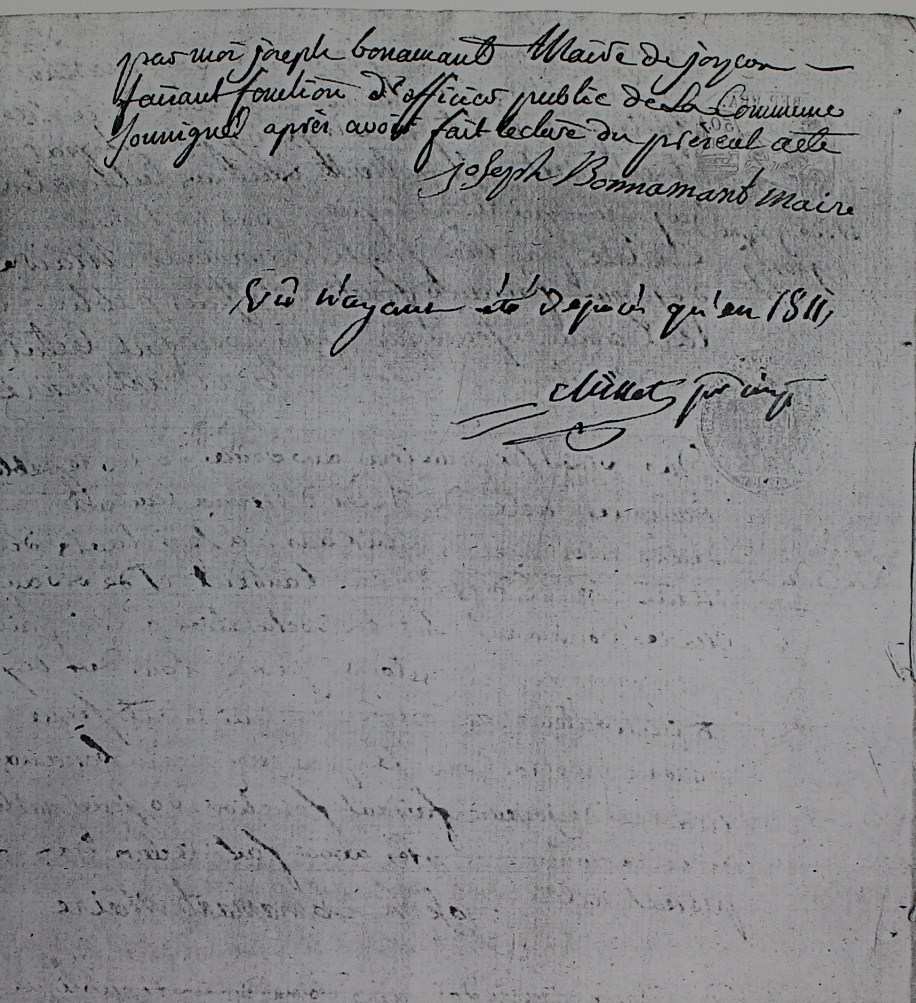 par moi joseph bonamant Maire de joycon
faisant fonction d'officier public de La Commune
soussigné après avoir fait lecture du présent acte
joseph Bonnamant maire
n'ayant été déposé qu'en 1811,